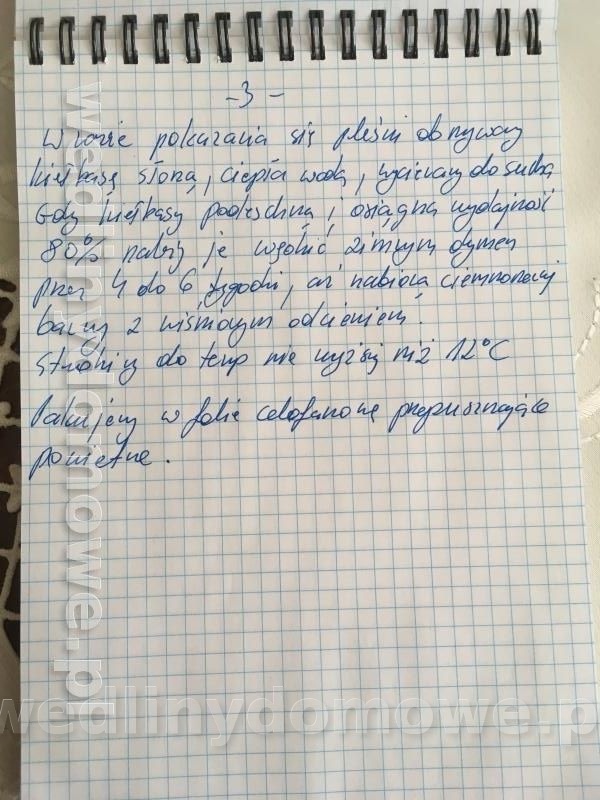 - 3 -
W razie pokazania się pleśni obmywamy
kiełbasę słoną, ciepłą wodą, wycieramy do sucha
Gdy kiełbasy podeschną i osiągną wydajność
80% należy je wędzić zimnym dymem
przez 4 do 6 tygodni, aż nabiorą ciemnobrązowej
barwy z wiśniowym odcieniem.
Studzimy do temp nie wyższej niż 12°C
Pakujemy w folie celofanową przepuszczające
powietrze.
wedlinydomowe.pl
wedlinydomowe.p